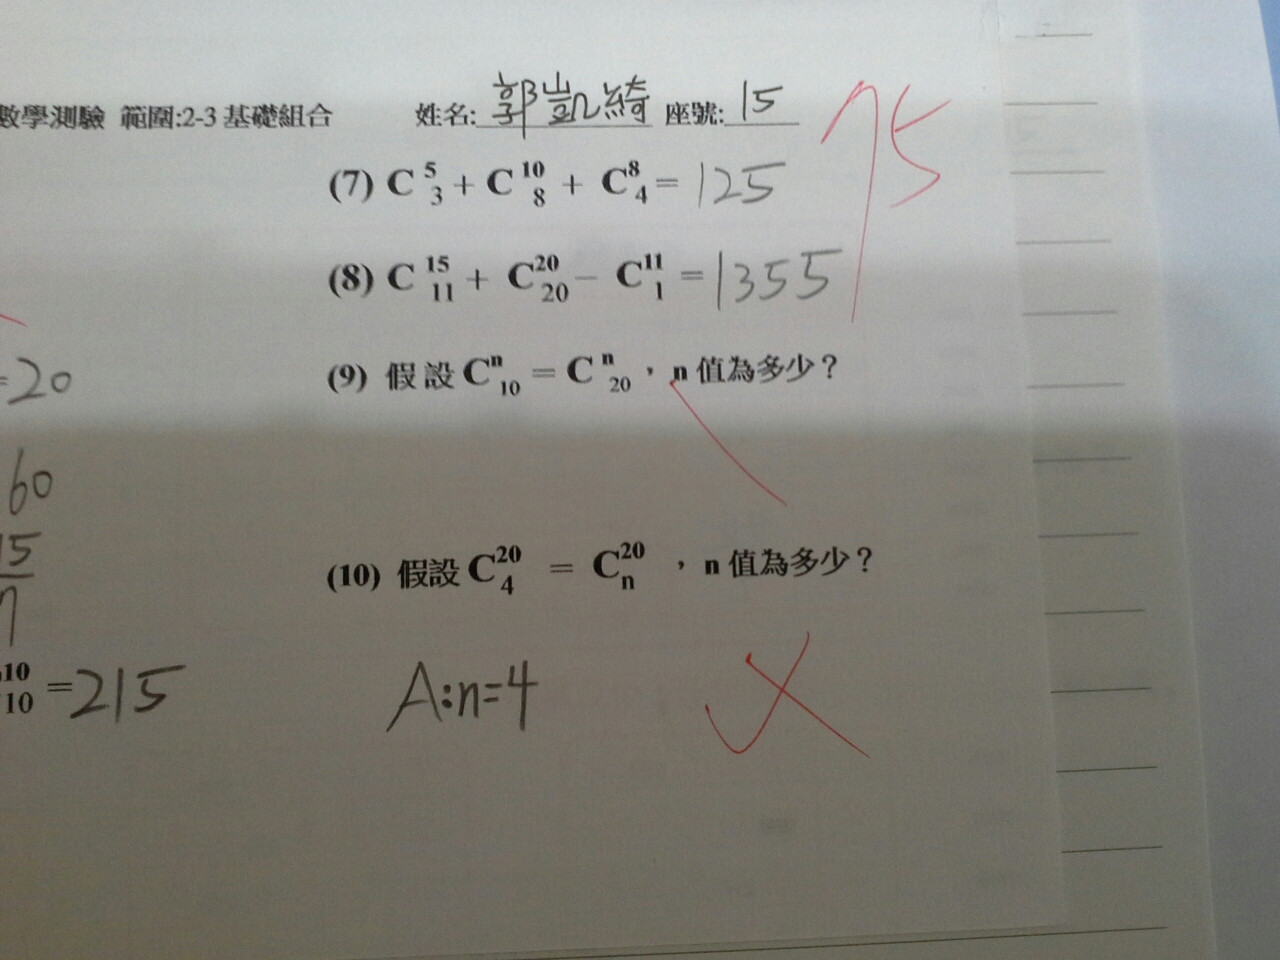 數學測驗 範圍:2-3 基礎組合 姓名: 郭凱綺 座號: 15
75
(7) C 5 3 + C 10 8 + C 8 4 = 125
(8) C 15 11 + C 20 20 − C 11 1 = 1355
=20
(9) 假設 C n 10 = C n 20 , n 值為多少?
60
15
(10) 假設 C 20 4 = C 20 n , n 值為多少?
10 10 =215
A:n=4